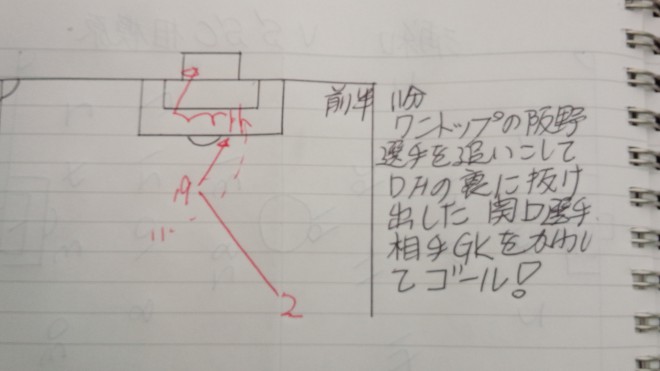 前半 11分
ワントップの阪野
選手を追いこして
DHの裏に抜け
出した関口選手.
相手GKをかわし
てゴール!
11
19
11
2